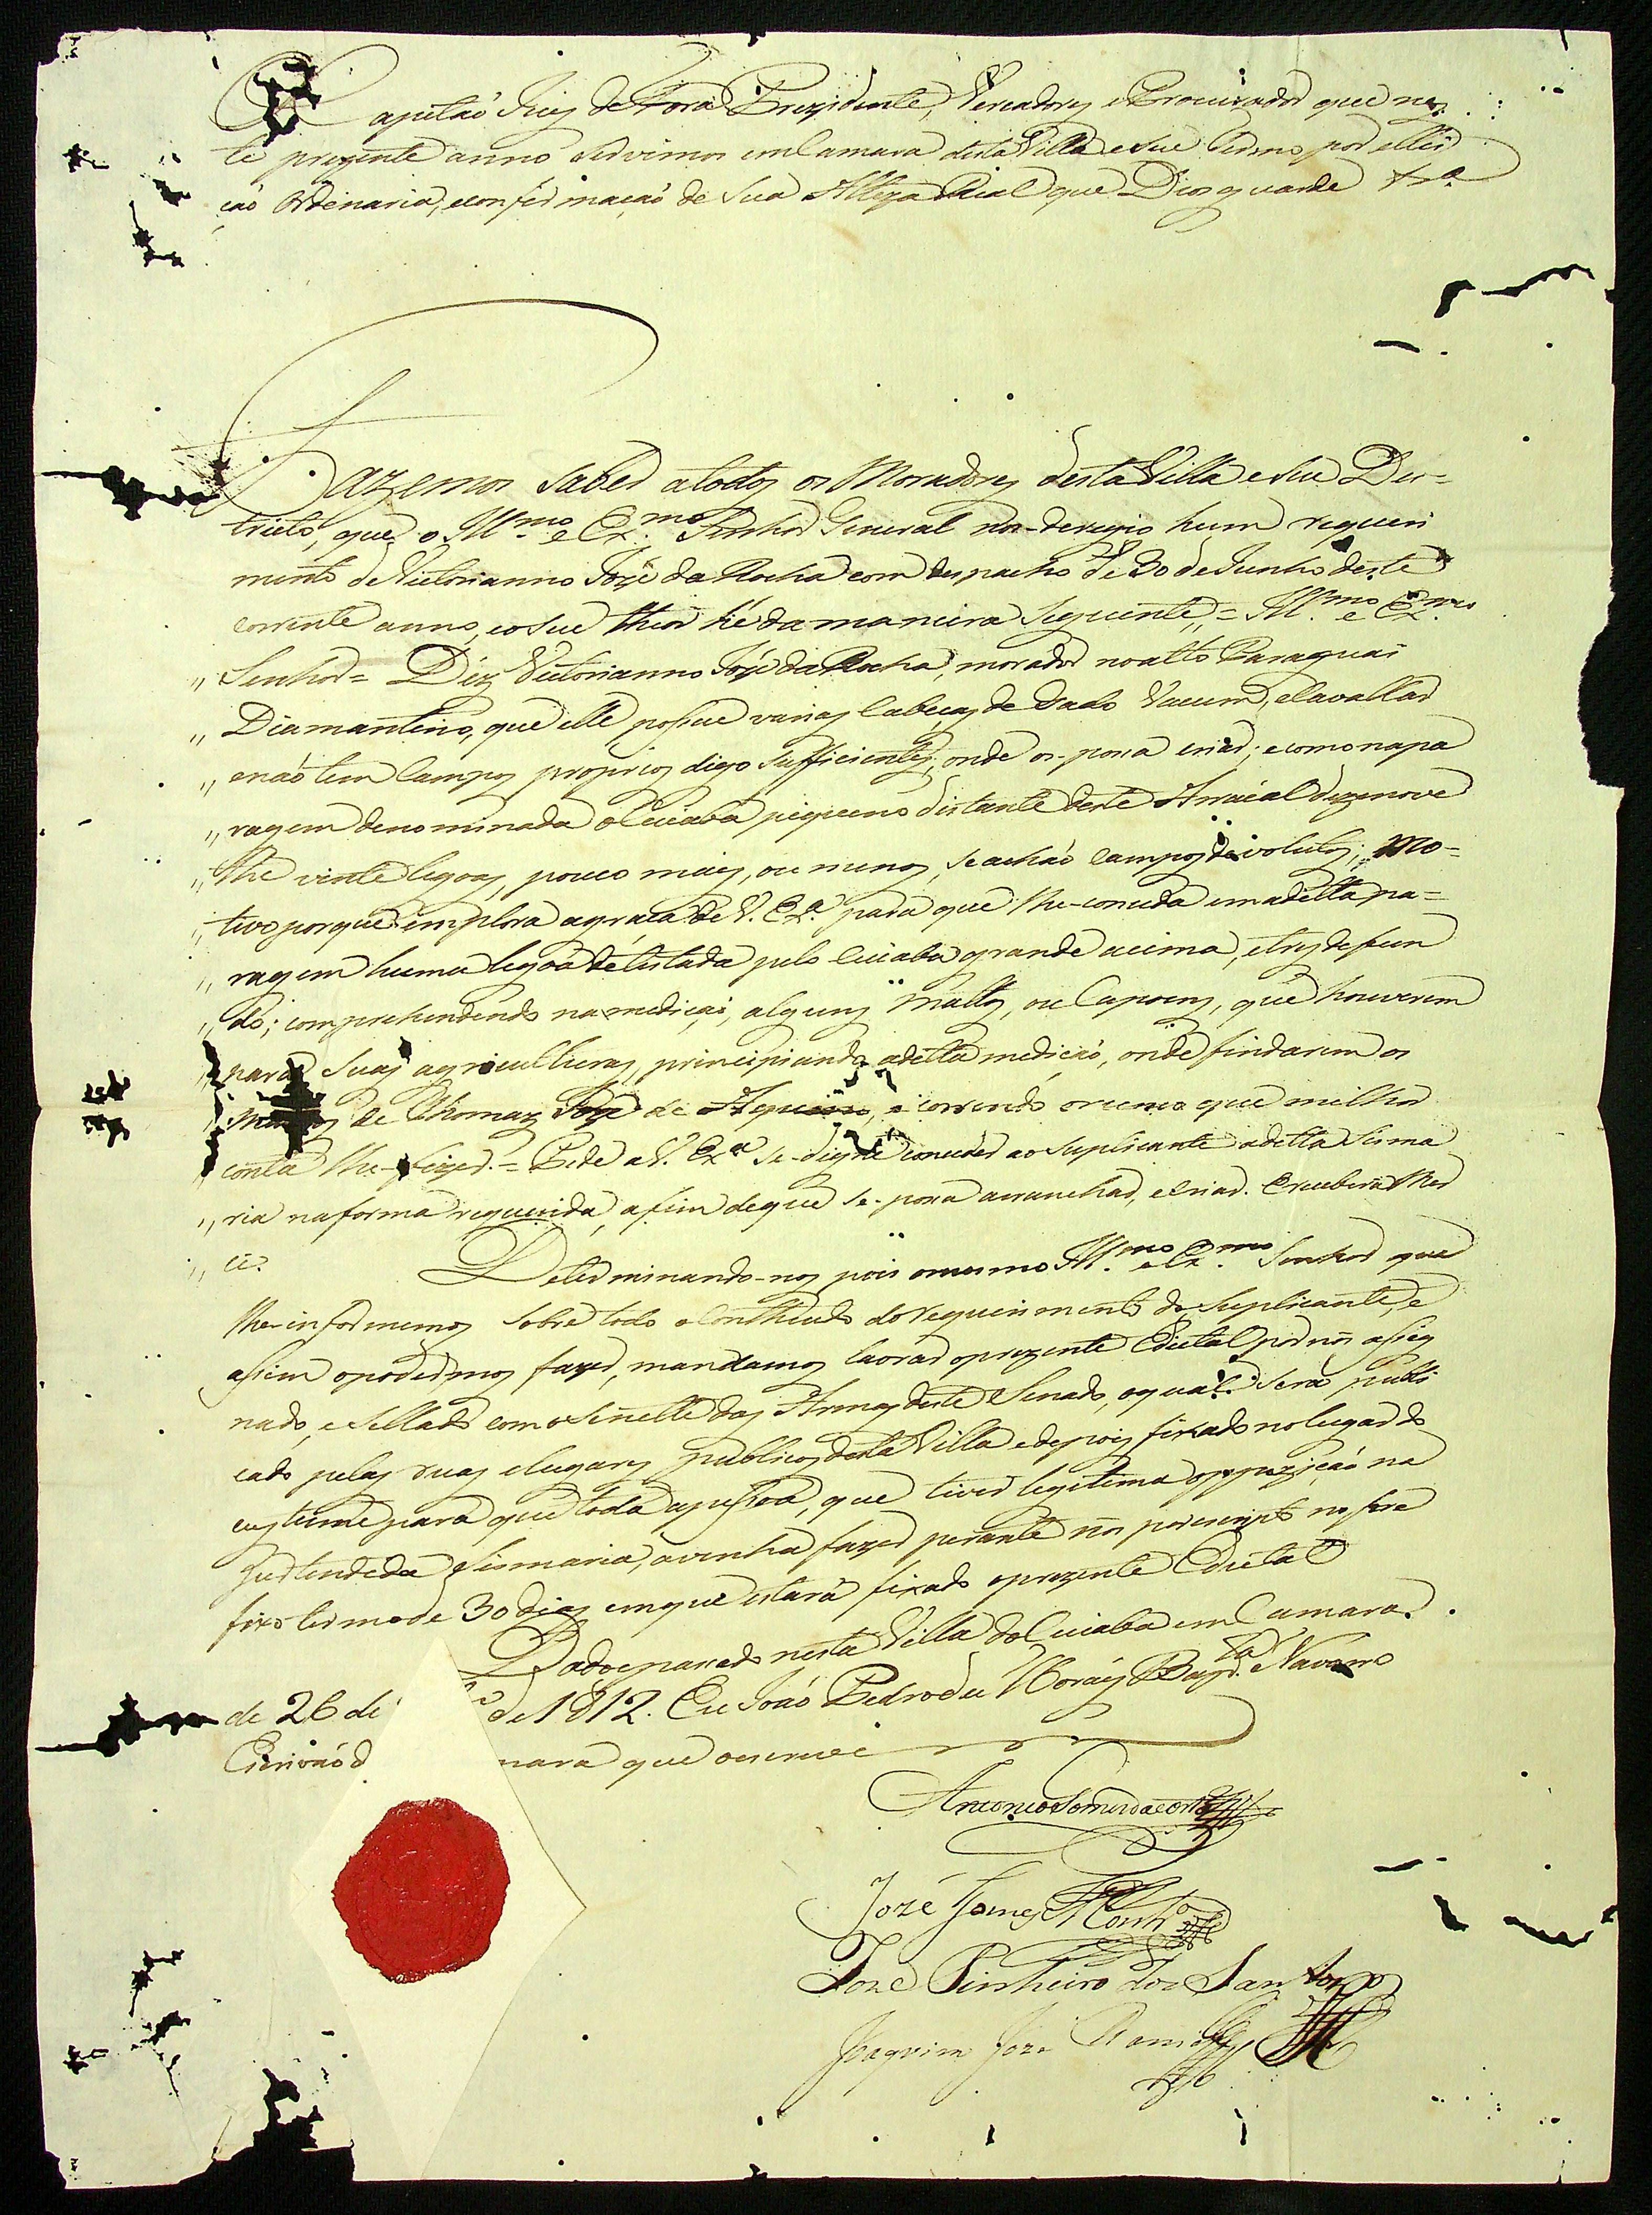 Capitaõ Juiz de Fora Prezidente, Vereadores e Procurador que nes
te prezente anno servimos em Camara desta Villa e seu termo por elleis
çaõ Ordenaria, e confirmaçaõ de Sua Alteza Rial que Deos guarde &ª
Fazemos saber a todos os Moradores desta Villa e seu Dis=
tricto, que o Illmo. e Exmo. Senhor General nos-deregio hum requeri
mento de Victorianno Joze da Rocha com despacho de 30 de Junho deste
corrente anno, e o seu theor hé da maneira seguinte, = Illmo. e Exmo.
,, Senhor = Diz Victorianno Joze da Rocha, morador no alto Paraguai
,, Diamantino, que elle possue varias Cabeças de Gado Vacum, e Cavallar
,, e naõ tem Campos proprios digo sufficientes, onde os-possa criar; e como na pa
,, ragem denominada o Cuiaba piqueno distante deste Arraial dezenove
,, the vinte legoas, pouco mais, ou menos, se achaõ Campos devolutos; Mo=
,, tivo porque implora a graça de V. Exª. para que lhe-conceda em a ditta pa=
,, ragem huma legoa de testada pelo Cuiaba grande acima, e tres de fun
,, do; comprehendendo na mediçaõ, alguns mattos, ou Capoens, que houverem
,, para suas agriculturas, principiando a ditta mediçaõ, onde findarem os
de Thomaz Joze de e correndo o rumo que milhor
conta lhe-fizer. = Pede a V. Exª se-digne conceder ao Suplicante a ditta Sisma
,, ria na forma requerida, a fim de que se-possa arranchar, e criar. E receberá Mer
,, cê. Determinando-nos pois o mesmo Illmo. e Exmo. Senhor que
lhe-informemos sobre todo o Contheudo do requerimento do Suplicante, e
assim o podermos fazer, mandamos lavrar o prezente Edictal por nós assig
nado, e Sellado com o Sinette das Armas deste Senado, o qual será publi
cado pelas ruas e lugares publicos desta Villa e depois fixado no lugar do
custume para que toda a pessoa, que tiver legitima oppoziçaõ na
pertendida Sismaria, a venha fazer perante nós por escripto no pre
fixo termo de 30 dias em que estará fixado o prezente Edictal
Dado e passado nesta Villa do Cuiaba em Camara
de 26 de de 1812. Eu Joaõ Pedro de Moraes Bapta. Navarro
Escrivaõ d mara que o escrevi
Antonio Gomes da Costa
Jozé Gomes Montrº
Joze Pinheiro dos Santos
Joaquim Joze Ramos